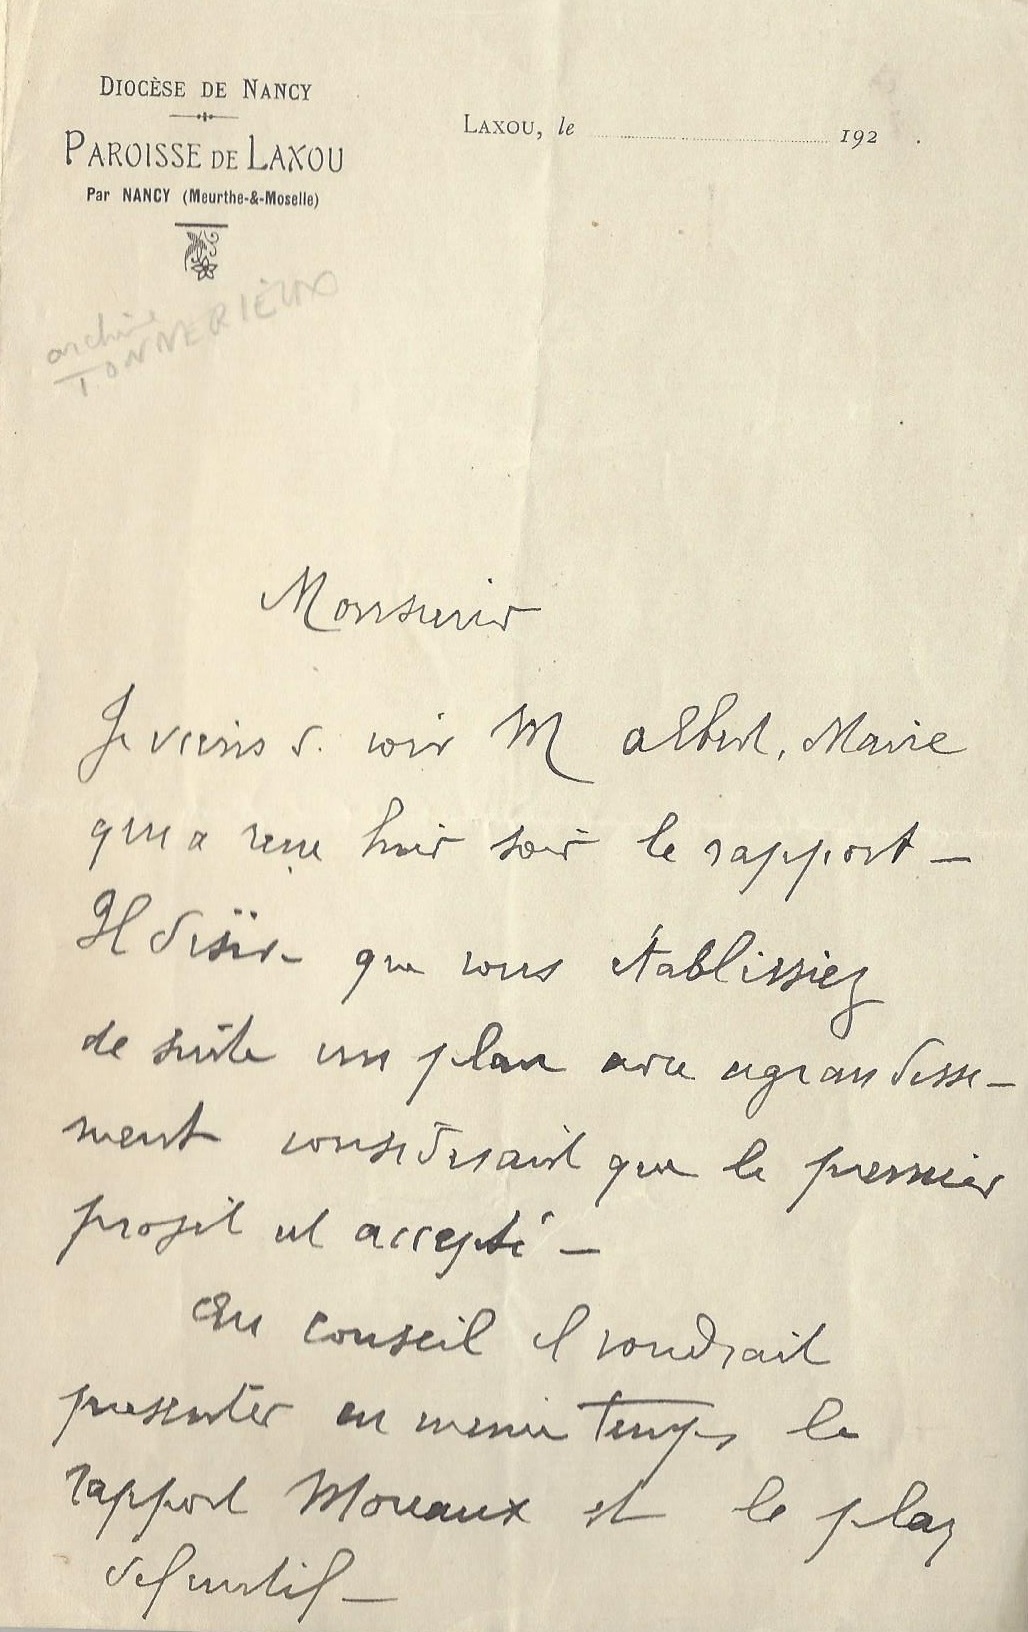 DIOCÈSE DE NANCY
PAROISSE DE LAXOU
Par NANCY (Meurthe-&-Moselle)
LAXOU, le 192 .
archive
TONNERIEUX
Monsieur
Je viens de voir M Albert, Maire
qui a reçu hier soir le rapport —
Il désire que vous établissiez
de suite un plan avec agrandisse-
ment considérant que le premier
projet est accepté —
Au conseil il voudrait
presenter en meme temps le
rapport Moreaux et le plan
definitif —